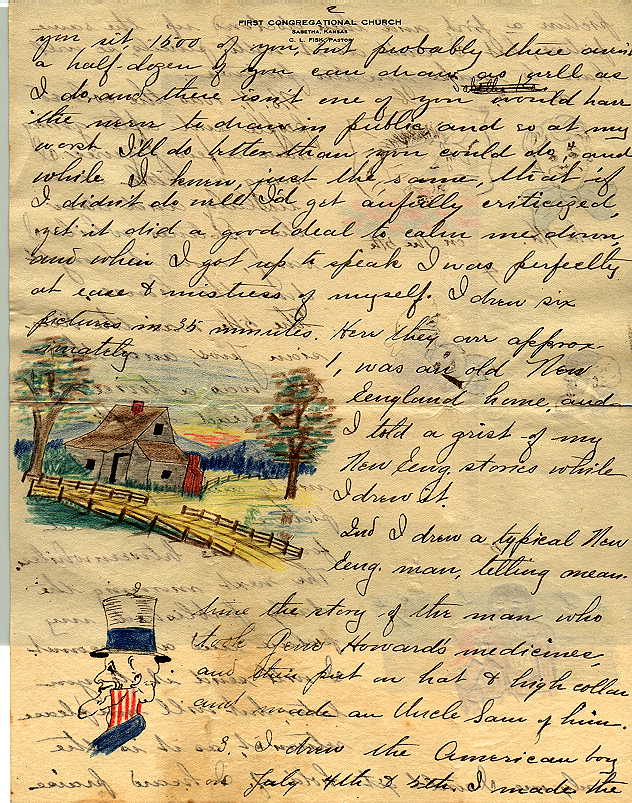 2
FIRST CONGREGATIONAL CHURCH
SABETHA, KANSAS
C. L. FISK, PASTOR
you, sit 1500 of you, but probably there aren't
a half-dozen of you can draw as well as
I do, and there isn't one of you would have
the nerve to draw in public and so at my
worst I'll do better than you could do, and
while I knew, just the same, that if
I didn't do well I'd get awfully criticized,
yet it did a good deal to calm me down,
and when I got up to speak I was perfectly
at ease & mistress of myself. I drew six
pictures in 35 minutes. Here they are approx-
imately
1, was an old New
England home, and
I told a grist of my
New Eng. stories while
I drew it.
2nd I drew a typical New
Eng. man, telling mean-
time the story of the man who
took Gene Howard's medicine,
and then put on hat & high collar
and made an Uncle Sam of him.
3, I drew the American boy
July 4th & 5th I made the